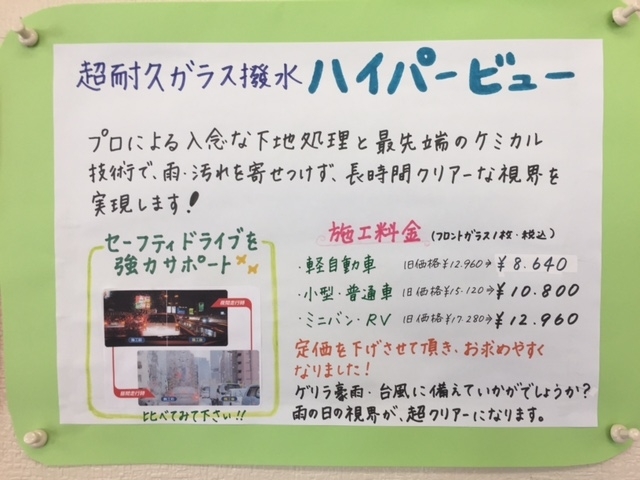 超耐久ガラス撥水 ハイパービュー
プロによる入念な下地処理と最先端のケミカル
技術で、雨・汚れを寄せつけず、長時間クリアーな視界を
実現します!
セーフティドライブを
強力サポート
夜間走行時
昼間走行時
比べてみて下さい!!
施工料金(フロントガラス1枚・税込)
・軽自動車 旧価格¥12.960→¥8.640
・小型・普通車 旧価格¥15.120→¥10.800
・ミニバン・RV 旧価格¥17.280→¥12.960
定価を下げさせて頂き、お求めやすく
なりました!
ゲリラ豪雨・台風に備えていかがでしょうか?
雨の日の視界が、超クリアーになります。